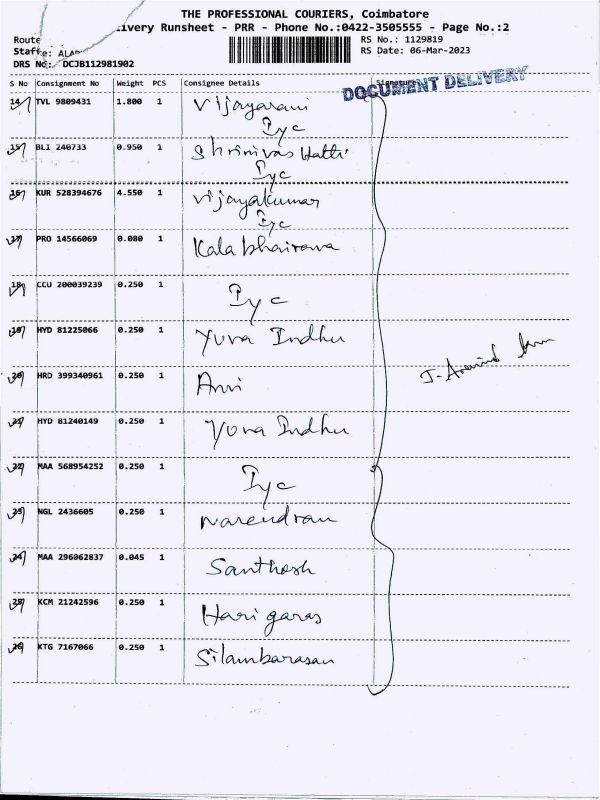 THE PROFESSIONAL COURIERS, Coimbatore
ivery Runsheet - PRR - Phone No.:0422-3505555 - Page No.:2
Route
RS No.: 1129819
Staff
RS Date: 06-Mar-2023
DRS No: DCJB112981902
S No Consignment No Weight PCS Consignee Details Signature
DOCUMENT DELIVERY
14 TVL 9809431 1.800 1 Vijayarani
Iyc
15 BLI 240733 0.950 1 Shrinivas Hatti
Iyc
16 KUR 528394676 4.550 1 Vijayakumar
Iyc
17 PRO 14566069 0.080 1 Kalabhairava
18 CCU 200039239 0.250 1 Iyc
19 HYD 81225066 0.250 1 Yuva Indhu
20 HRD 399340961 0.250 1
21 HYD 81240149 0.250 1 Yuva Indhu
22 MAA 568954252 0.250 1 Iyc
23 NGL 2436605 0.250 1 Narendran
24 MAA 296062837 0.045 1 Santhosh
25 KCM 21242596 0.250 1 Hari garas
26 KTG 7167066 0.250 1 Silambarasan